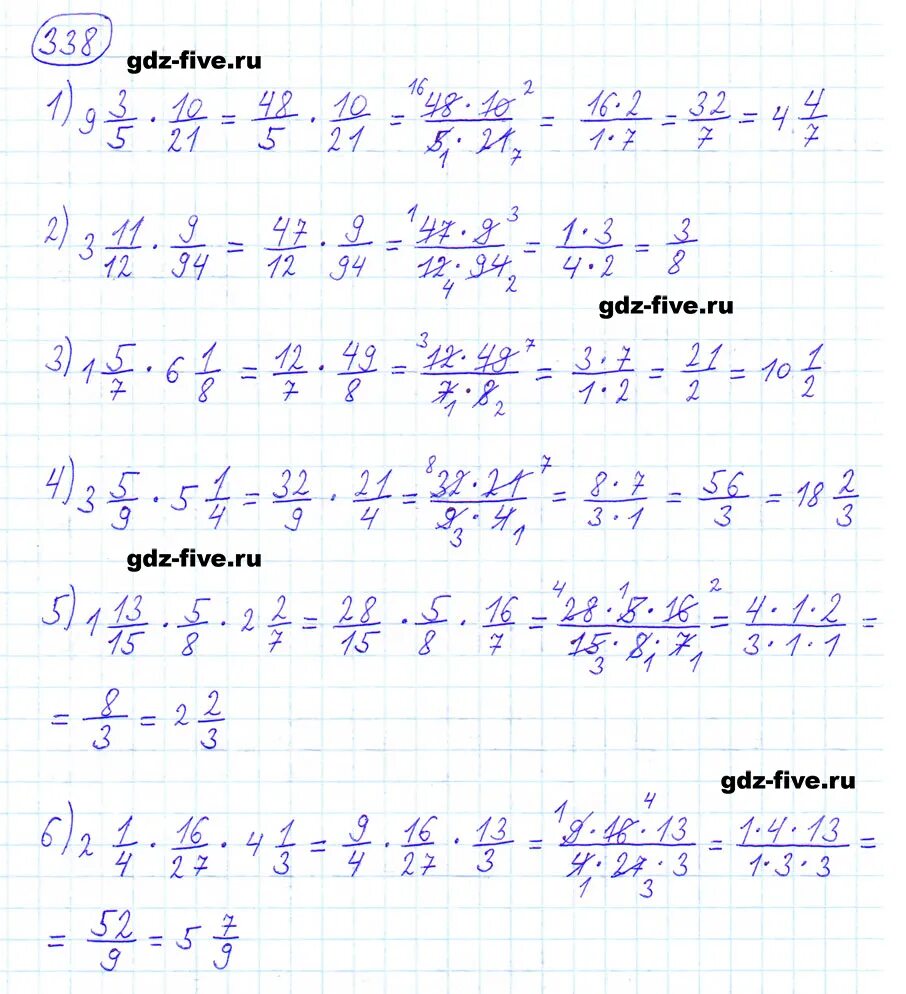 338
gdz-five.ru
1) 9 3/5 · 10/21 = 48/5 · 10/21 = 48·10/5·21 (16, 2, 1, 7) = 16·2/1·7 = 32/7 = 4 4/7
2) 3 11/12 · 9/94 = 47/12 · 9/94 = 47·9/12·94 (1, 3, 4, 2) = 1·3/4·2 = 3/8
gdz-five.ru
3) 1 5/7 · 6 1/8 = 12/7 · 49/8 = 12·49/7·8 (3, 7, 1, 2) = 3·7/1·2 = 21/2 = 10 1/2
4) 3 5/9 · 5 1/4 = 32/9 · 21/4 = 32·21/9·4 (8, 7, 3, 1) = 8·7/3·1 = 56/3 = 18 2/3
gdz-five.ru
5) 1 13/15 · 5/8 · 2 2/7 = 28/15 · 5/8 · 16/7 = 28·5·16/15·8·7 (4, 1, 2, 3, 1, 1) = 4·1·2/3·1·1 =
= 8/3 = 2 2/3
gdz-five.ru
6) 2 1/4 · 16/27 · 4 1/3 = 9/4 · 16/27 · 13/3 = 9·16·13/4·27·3 (1, 4, 1, 3) = 1·4·13/1·3·3 =
= 52/9 = 5 7/9